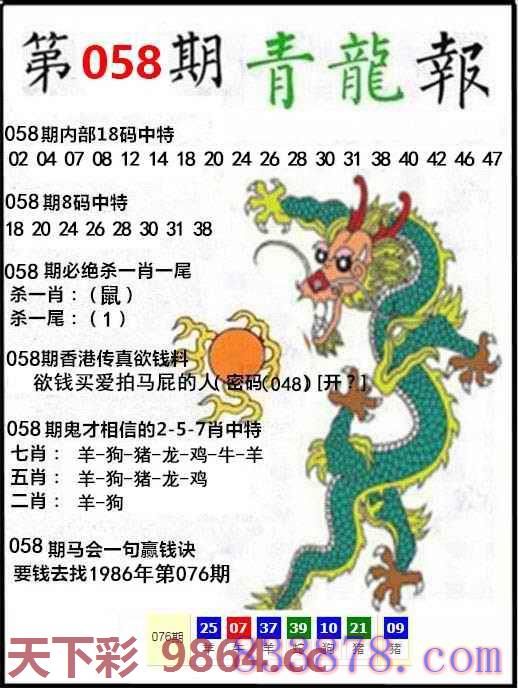 第058期 青龍報
058期内部18码中特
02 04 07 08 12 14 18 20 24 26 28 30 31 38 40 42 46 47
058期8码中特
18 20 24 26 28 30 31 38
058期必绝杀一肖一尾
杀一肖：（鼠）
杀一尾：（1）
058期香港传真欲钱料
欲钱买爱拍马屁的人（密码(048）[开？]
058期鬼才相信的2-5-7肖中特
七肖： 羊-狗-猪-龙-鸡-牛-羊
五肖： 羊-狗-猪-龙-鸡
二肖： 羊-狗
058期马会一句赢钱诀
要钱去找1986年第076期
076期 25 07 37 39 10 21 09
羊 羊 狗 猪 猪
天下彩 9864.cc